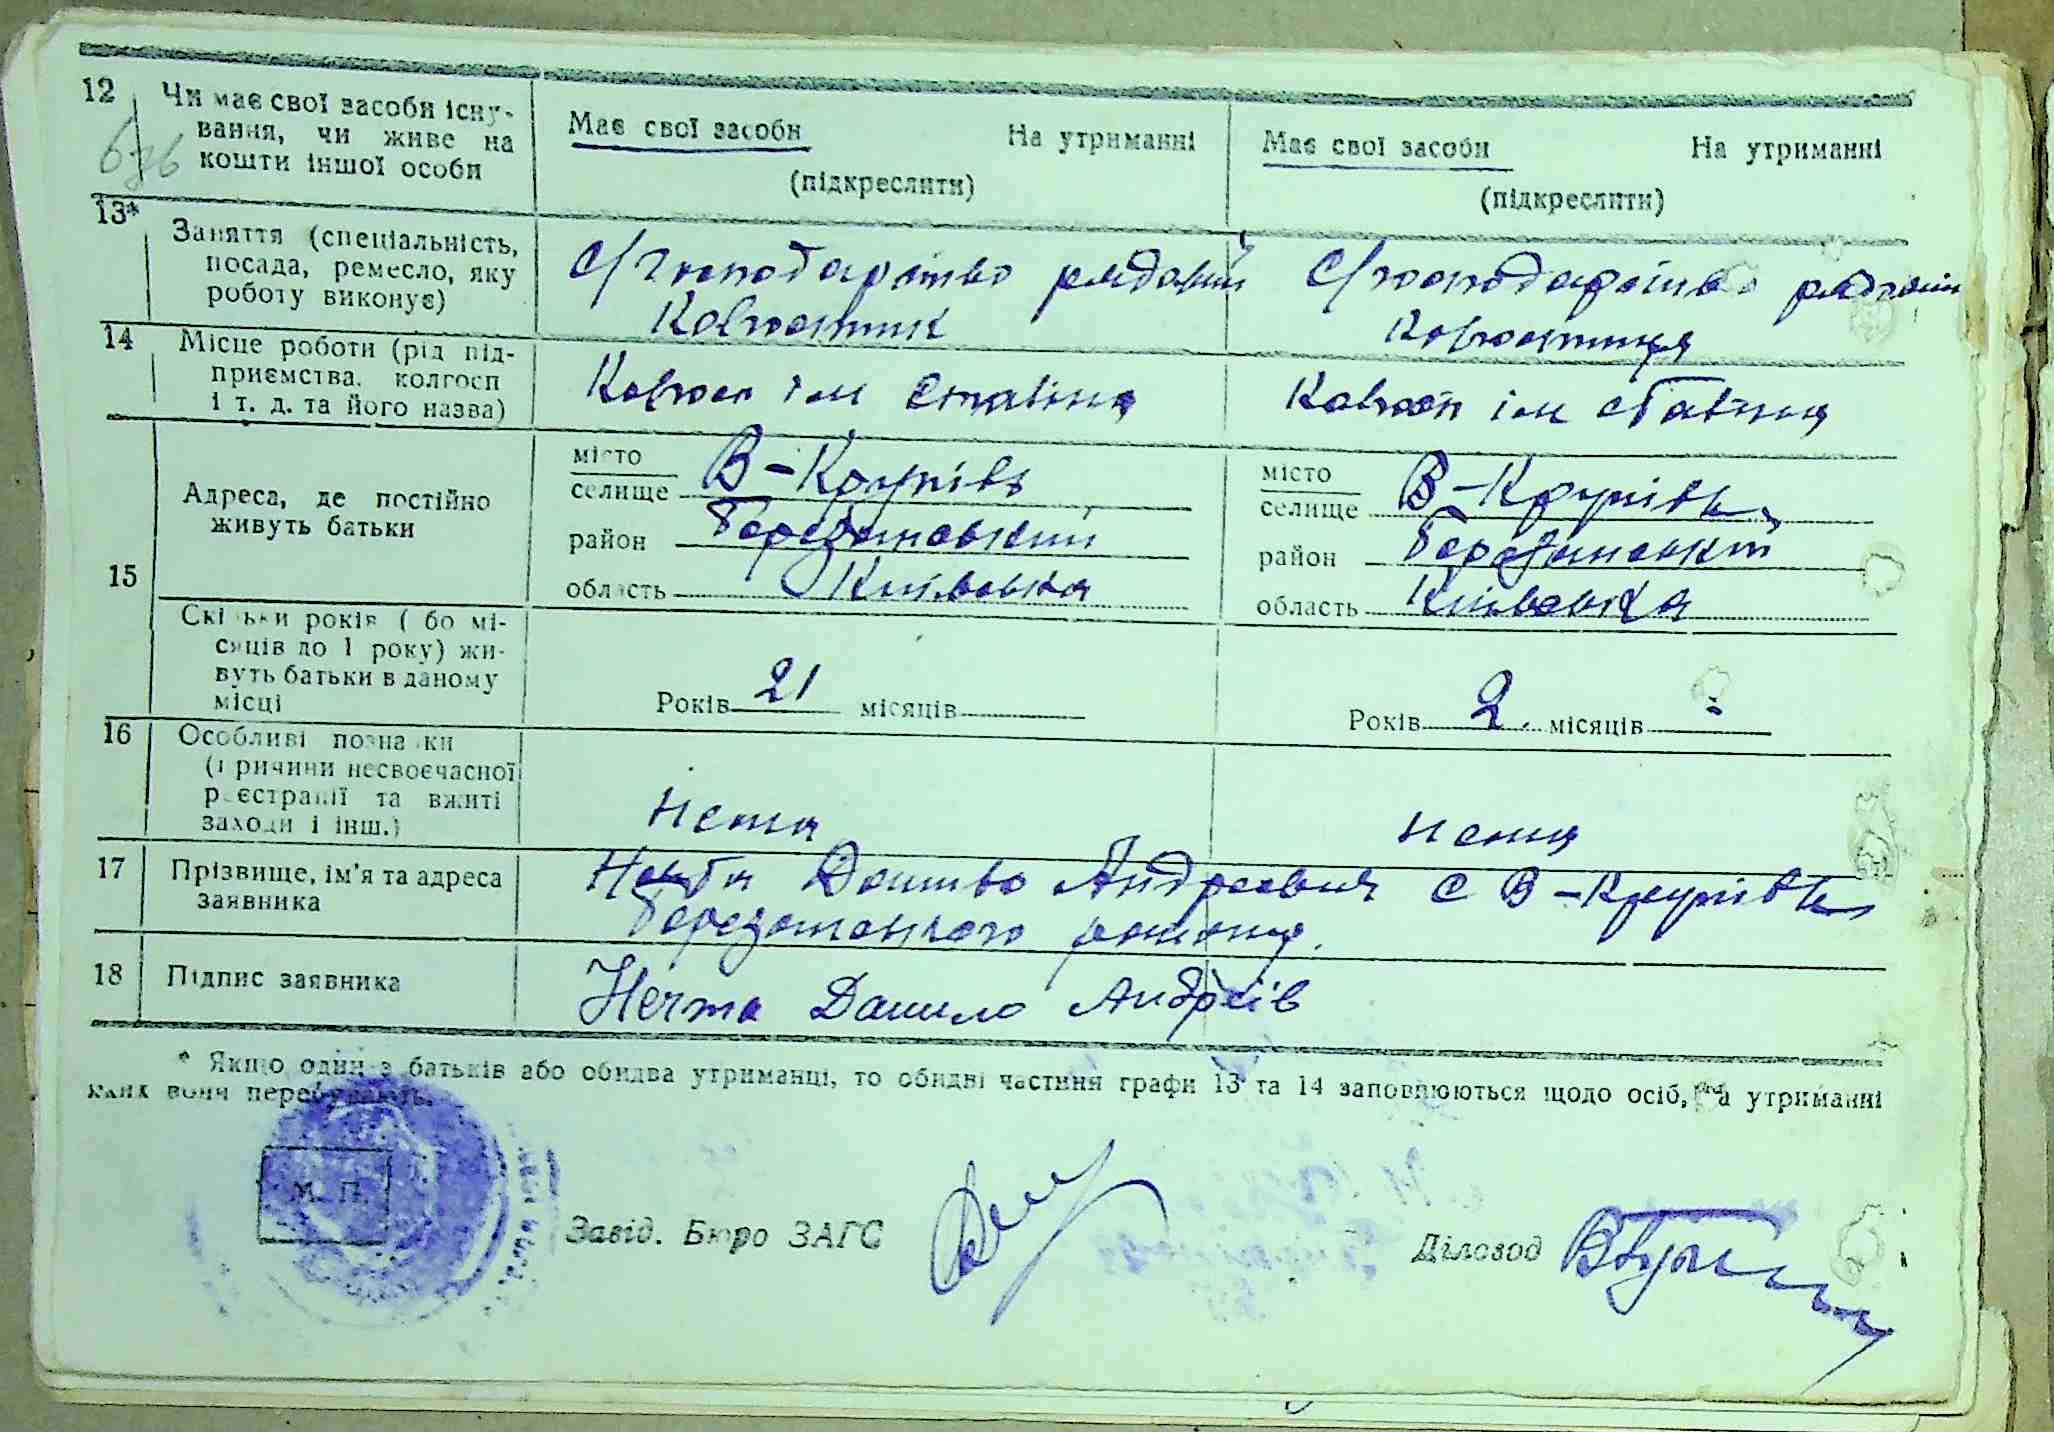 12 Чи має свої засоби існу-
вання, чи живе на
кошти іншої особи
Має свої засоби На утриманні
(підкреслити)
Має свої засоби На утриманні
(підкреслити)
13* Заняття (спеціальність,
посада, ремесло, яку
роботу виконує)
С/господарство рядовий
Колгоспник
С/господарство рядовий
Колгоспниця
14 Місце роботи (рід під-
приємства, колгосп
і т. д. та його назва)
Колгосп ім Сталіна
Колгосп ім Сталіна
15 Адреса, де постійно
живуть батьки
місто
селище В-Крупівь
район Березанський
область Київська
місто
селище В-Крупівь
район Березанський
область Київська
Скільки років (або мі-
сяців до 1 року) жи-
вуть батьки в даному
місці
Років 21 місяців
Років 2. місяців -
16 Особливі познаки
(причини несвоєчасної
реєстрації та вжиті
заходи і інш.)
Нема
Нема
17 Прізвище, ім'я та адреса
заявника
Данило Андреевич с В-Крупівь
Березанського району.
18 Підпис заявника
Нечта Данило Андреів
* Якщо один з батьків або обидва утриманці, то обидві частини графи 13 та 14 заповнюються щодо осіб, на утриманні
яких вони перебувають.
М. П.
Завід. Бюро ЗАГС
Діловод